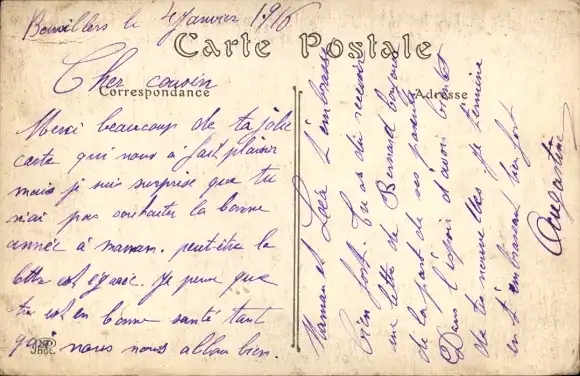 Bouvillers le 4 Janvier 1916
Carte Postale
Correspondance
Adresse
Cher cousin
Merci beaucoup de ta jolie
carte qui nous a fait plaisir
mais je suis surprise que tu
n'ai pas souhaiter la bonne
année à maman. peut-être la
lettre est égaré. Je pense que
tu est en bonne santé tant
qu'à nous nous allons bien.
Maman et Lota t'embrasse
bien fort. Tu as du recevoir
une lettre de Bernard toujours
de la part de ses parents
Dans l'espoir d'avoir bientot
de tes nouvelles je termine
en t'embrassant bien fort
Augustine
Phot.